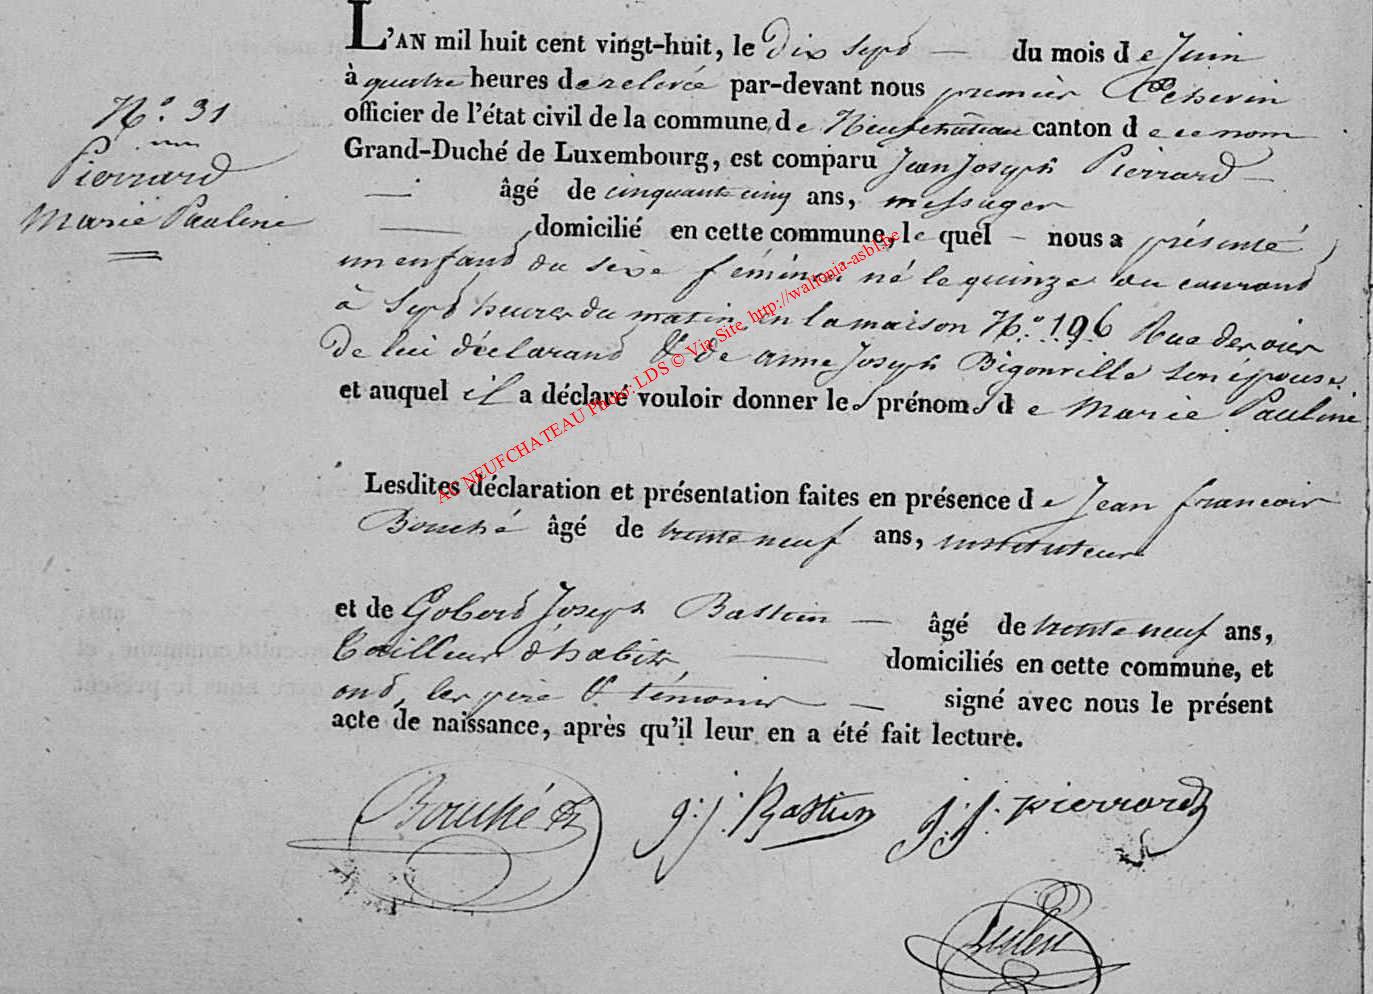 L'AN mil huit cent vingt-huit, le Dix Sept — du mois de Juin
à quatre heures de relevée par-devant nous premier Echevin
officier de l'état civil de la commune de Neufchateau canton de ce nom
Grand-Duché de Luxembourg, est comparu Jean Joseph Pierrard —
— âgé de cinquante cinq ans, messager
— domicilié en cette commune, le quel — nous a présenté
un enfant du sexe féminin né le quinze du courant
à Sept heures du matin en la maison N.º 196 Rue
De lui déclarant & De anne Joseph Bigonville son épouse,
et auquel il a déclaré vouloir donner les prénoms de Marie Pauline
N.º 31
Pierrard
Marie Pauline
Lesdites déclaration et présentation faites en présence de Jean francois
Bouché âgé de trente neuf ans, instituteur
et de Gobert Joseph Bastien — âgé de trente neuf ans,
Tailleur d'habits — domiciliés en cette commune, et
ont, les père & témoins — signé avec nous le présent
acte de naissance, après qu'il leur en a été fait lecture.
Bouché g: j: Bastien j: j: pierrard
AC NEUFCHATEAU Photo: LDS © Via Site http://wallonia-asbl.be